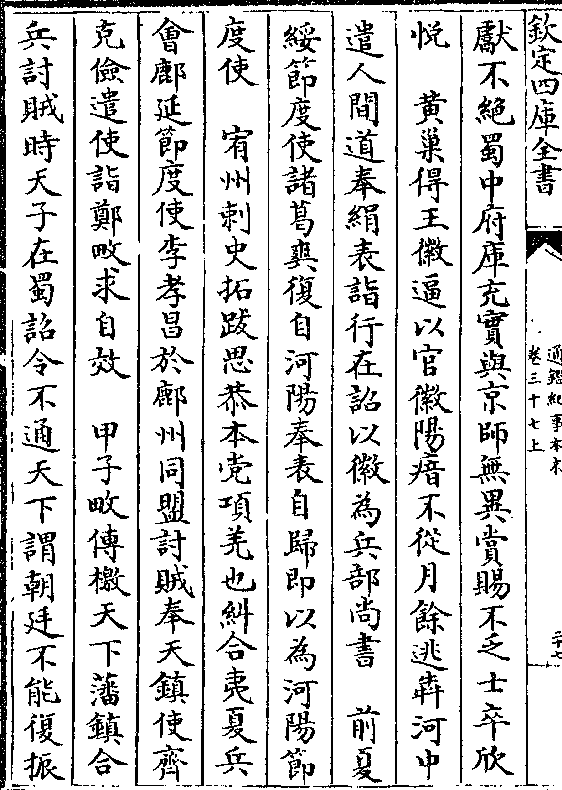 欽定四庫全書
通鑑紀事本末
卷三十七上
二十七
獻不絶蜀中府庫充實與京師無異賞賜不乏士卒欣
悦　黄巢得王徽逼以官徽陽瘖不從月餘逃犇河中
遣人間道奉絹表詣行在詔以徽為兵部尚書　前夏
綏節度使諸葛爽復自河陽奉表自歸即以為河陽節
度使　宥州刺史拓跋思恭本党項羌也糾合夷夏兵
會鄜延節度使李孝昌於鄜州同盟討賊奉天鎮使齊
克儉遣使詣鄭畋求自效　甲子畋傳檄天下藩鎮合
兵討賊時天子在蜀詔令不通天下謂朝廷不能復振